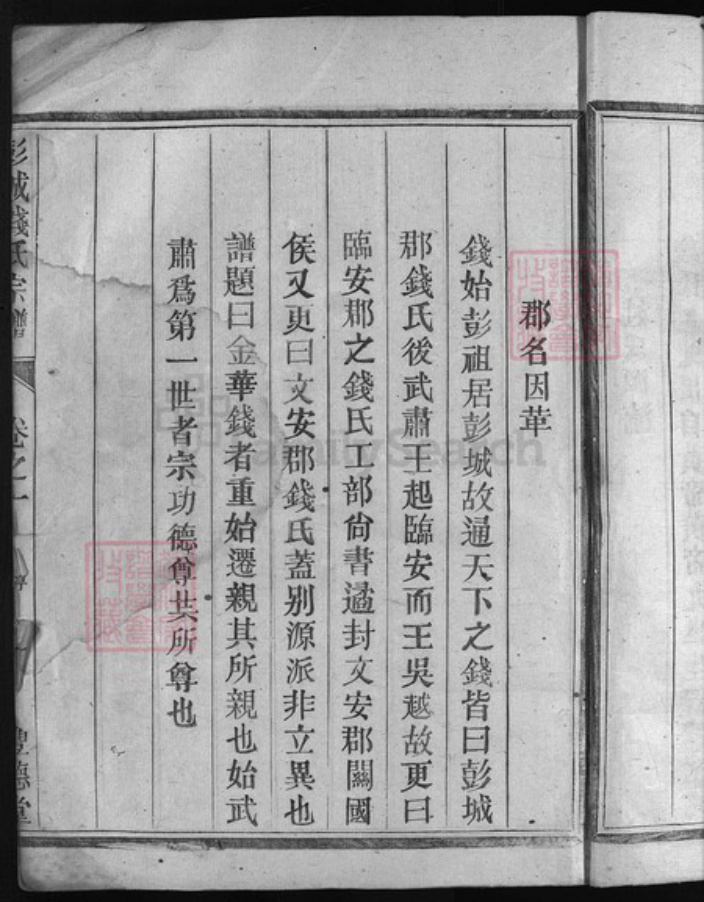 郡名因革
錢始彭祖居彭城故通天下之錢皆曰彭城
郡錢氏後武肅王起臨安而王吳越故更曰
臨安郡之錢氏工部尙書遹封文安郡開國
侯又更曰文安郡錢氏蓋别源派非立異也
譜題曰金華錢者重始遷親其所親也始武
肅爲第一世者宗功德尊其所尊也
彭城錢氏宗譜
卷之一
豐德堂
FamilySearch